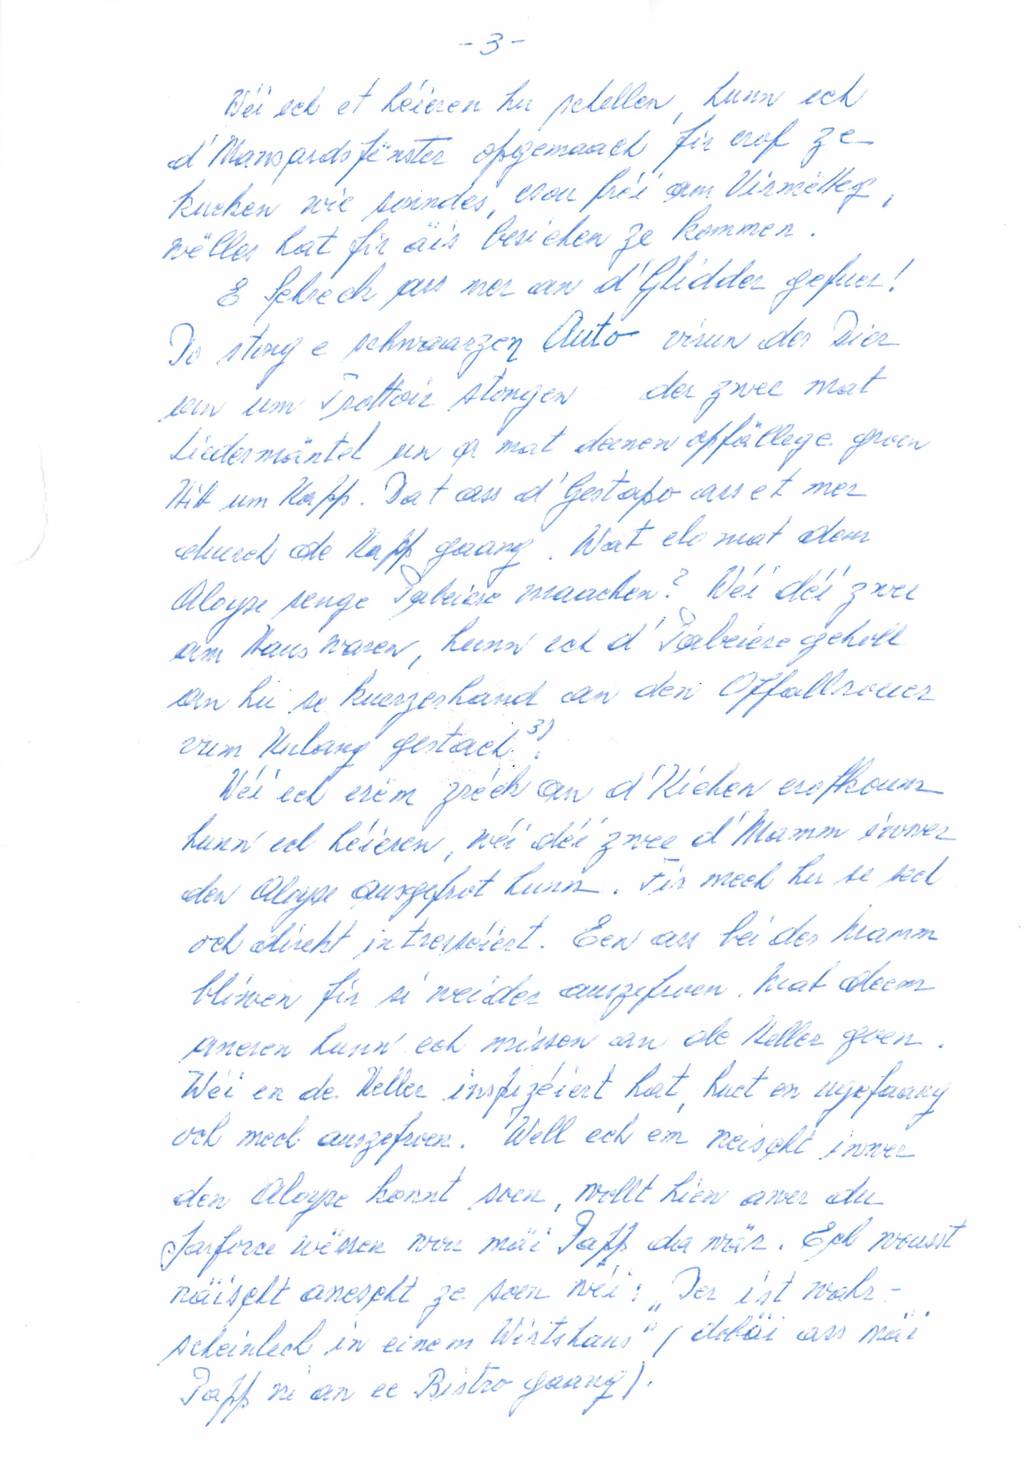 - 3 -
Wéi ech et héieren hu schellen, hunn ech
d'Mansardsfënster opgemaach fir erof ze
kucken wie sonndes, esou fréi am Virmëtteg,
wëlles hat fir äis besichen ze kommen.
E Schrech ass mer an d'Glidder gefuer!
Do stong e schwaarzen Auto virun der Dier
an um Trottoir stongen der zwee mat
Liedermäntel un a mat deenen opfällege groen
Hit um Kapp. Dat ass d'Gestapo ass et mer
duerch de Kapp gaang. Wat elo mat dem
Aloyse senge Pabeiere maachen? Wéi déi zwee
am Haus waren, hunn ech d'Pabeiere geholl
an hu se kuerzerhand an den Offallrouer
vum Kulang gestach 3).
Wéi ech erëm zréck an d'Kichen erofkoum
hunn ech héieren, wéi déi zwee d'Mamm iwwer
den Aloyse ausgefrot hunn. Fir mech hu se sech
och direkt intresséiert. Een ass bei der Mamm
bliwen fir si weider auszefroen. Mat deem
aneren hunn ech missen an de Keller goen.
Wéi en de Keller inspizéiert hat, huet en ugefaang
och mech auszefroen. Well ech em neischt iwwer
den Aloyse konnt soen, wollt hien awer du
parforce wëssen wou mäi Papp da wär. Ech wousst
näischt anescht ze soen wéi: „Der ist wahr-
scheinlech in einem Wirtshaus" (dobäi ass mäi
Papp ni an ee Bistro gaang).